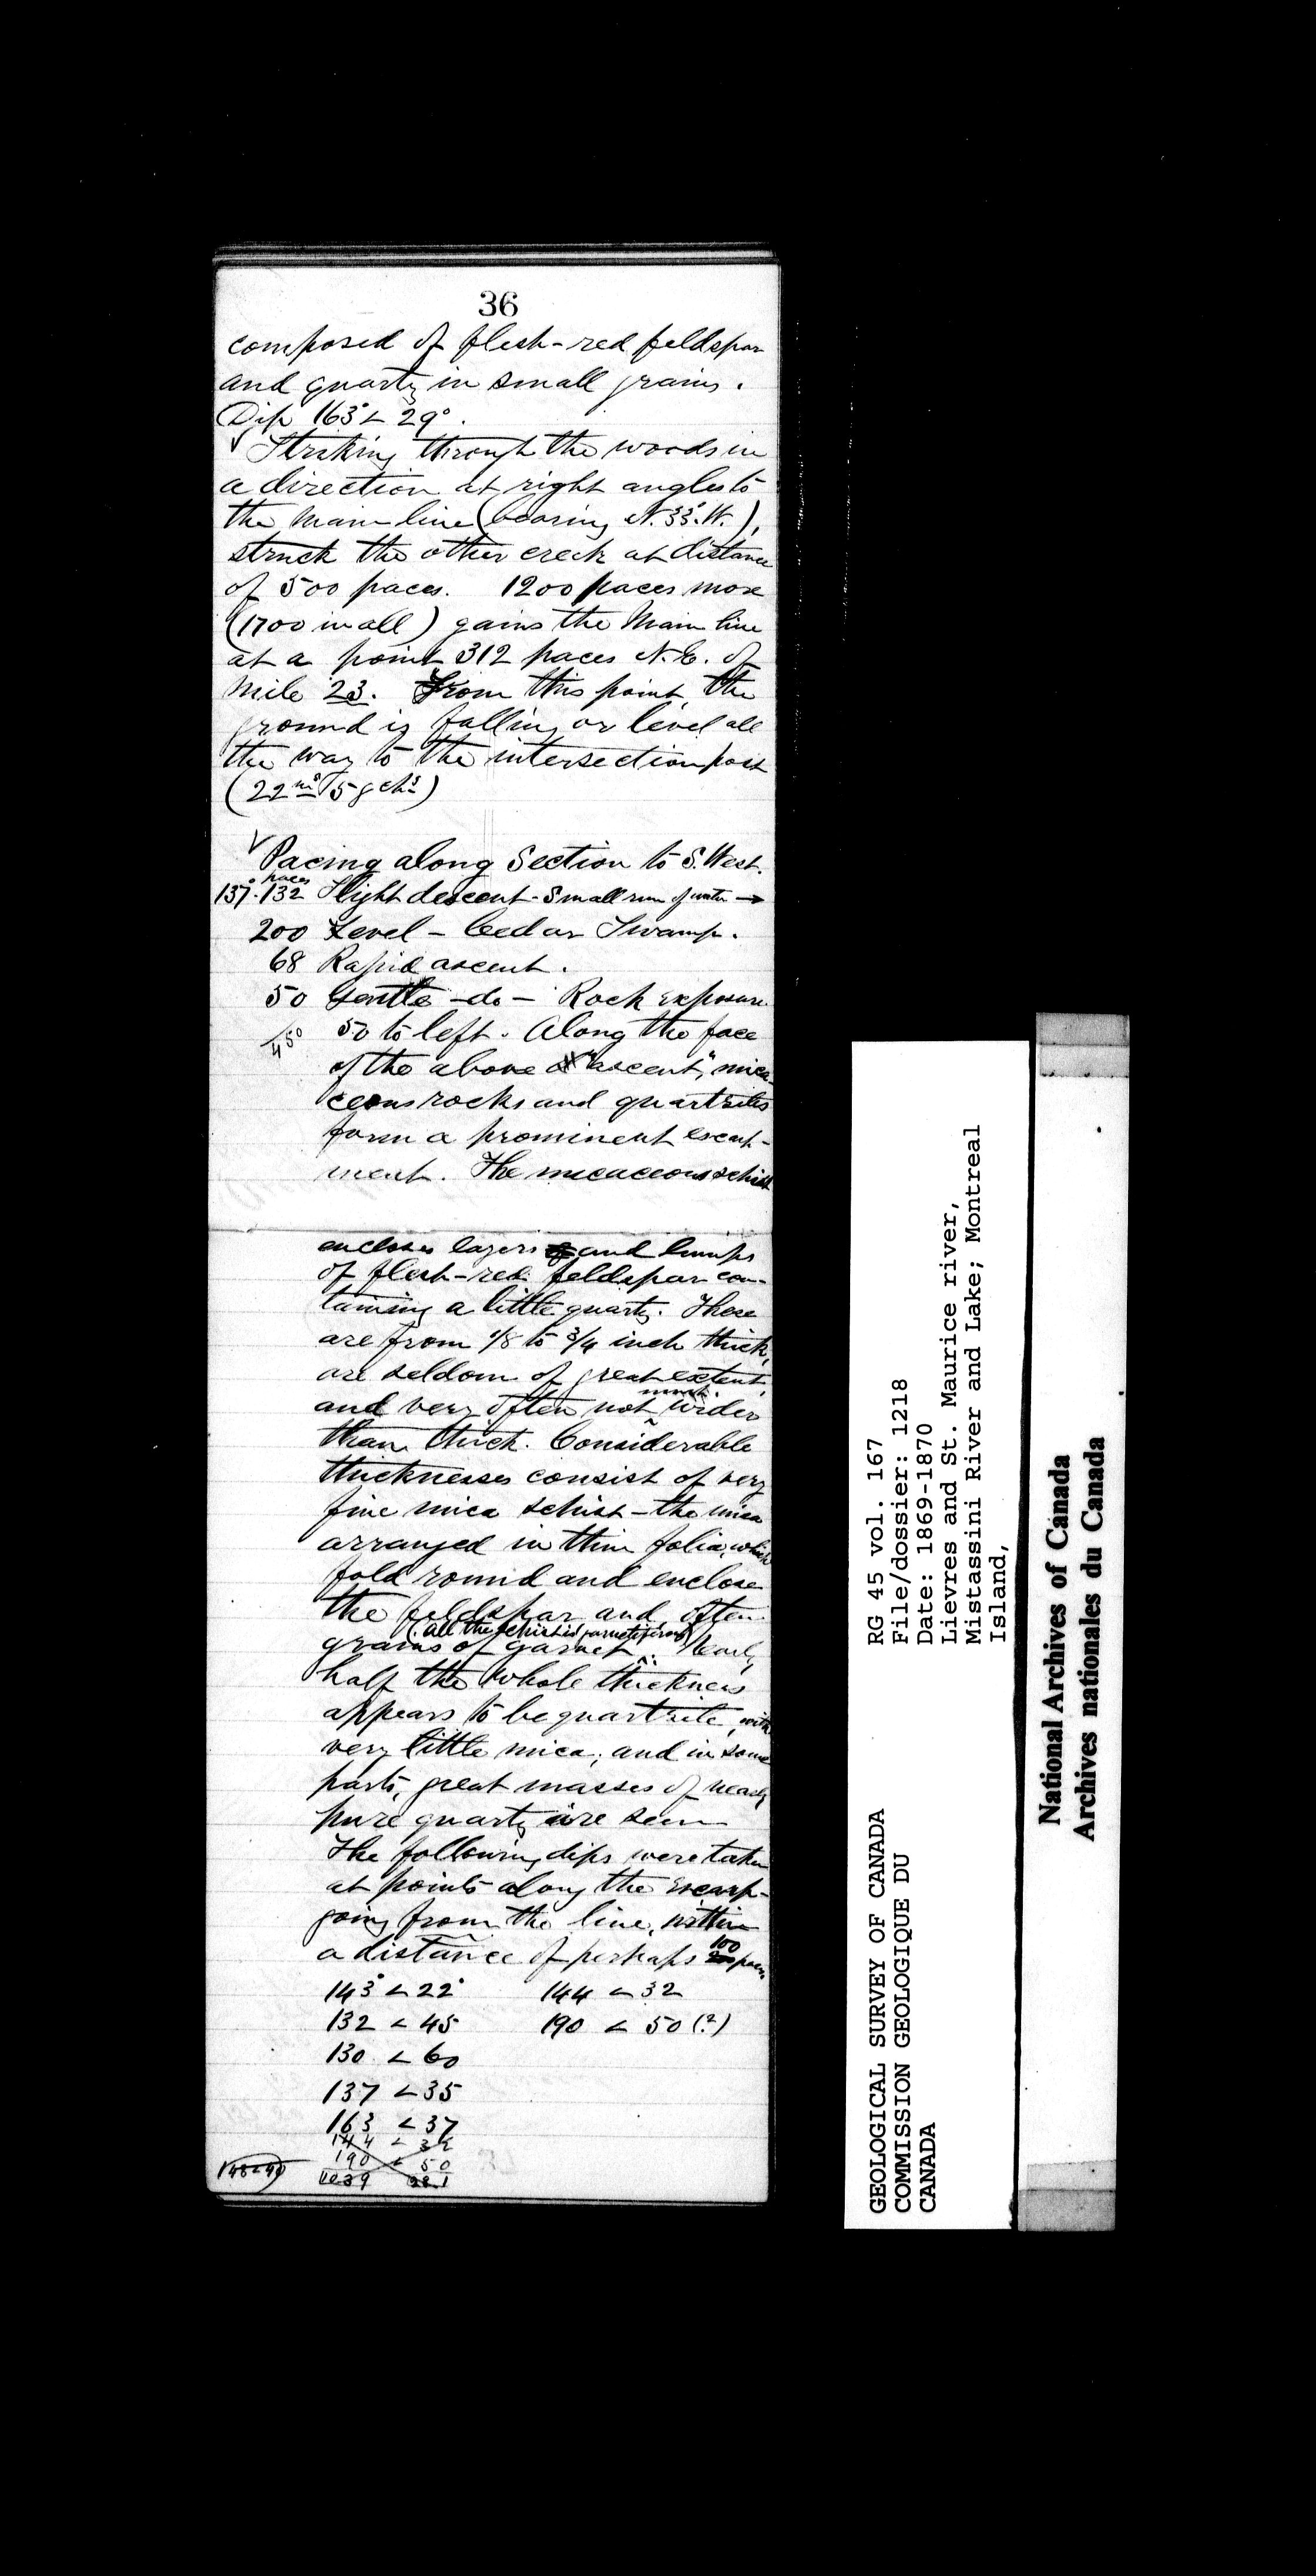 36
composed of flesh-red feldspar
and quartz in small grains.
Dip 163° < 29°.
Striking through the woods in
a direction at right angles to
the main line (bearing N. 33° W.),
struck the other creek at distance
of 500 paces. 1200 paces more
(1700 in all) gains the Main line
at a point 312 paces N. E. of
mile 23. From this point, the
ground is falling or level all
the way to the intersection post
(22 ms 58 chs)
Pacing along Section to S. West.
paces
137° 132 Slight descent - Small run of water →
200 Level - Cedar Swamp.
68 Rapid ascent.
50 Gentle - do - Rock exposure
450 50 to left. Along the face
of the above "ascent," mica-
ceous rocks and quartzites
form a prominent escarp-
ment. The micaceous schist
encloses layers and lumps
of flesh-red feldspar con-
taining a little quartz. These
are from 1/8 to 3/4 inch thick,
are seldom of great extent,
and very often not much wider
than thick. Considerable
thicknesses consist of very
fine mica schist - the mica
arranged in thin folia, which
fold round and enclose
the feldspar and often
grains of garnet (all the schist is garnetiferous). Nearly
half the whole thickness
appears to be quartzite, with
very little mica; and in some
parts, great masses of nearly
pure quartz are seen
The following dips were taken
at points along the escarp-
going from the line, within
a distance of perhaps 100 paces
143° < 22° 144 < 32
132 < 45 190 < 50 (?)
130 < 60
137 < 35
163 < 37
144 < 32
190 < 50
1039 281
148 < 40
RG 45 vol. 167
File/dossier: 1218
Date: 1869-1870
Lievres and St. Maurice river,
Mistassini River and Lake; Montreal
Island,
GEOLOGICAL SURVEY OF CANADA
COMMISSION GEOLOGIQUE DU
CANADA
National Archives of Canada
Archives nationales du Canada